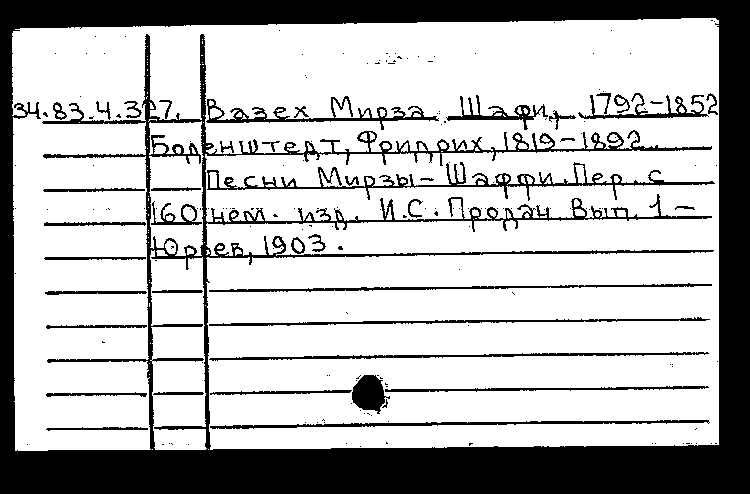 34.83.4.327. Вазех Мирза Шафи, 1792-1852
Боденштедт, Фридрих, 1819-1892.
Песни Мирзы-Шаффи. Пер. с
160 нем. изд. И.С. Продан Вып. 1-
Юрьев, 1903.